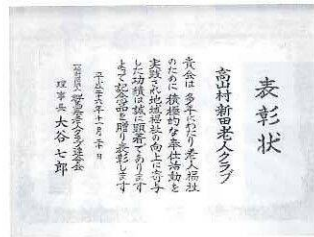 表彰状
高山村新田老人クラブ
貴会は多年にわたり老人福祉
のために積極的な奉仕活動を
実践され地域福祉の向上に寄与
した功績は誠に顕著であります
よって記念品を贈り表彰します
平成十六年十一月二十日
老人クラブ連合会
理事長 大谷七郎